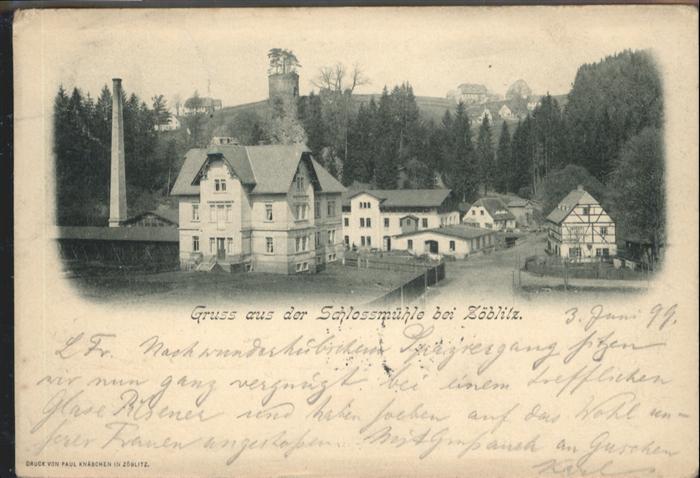 Gruss aus der Schlossmühle bei Zöblitz.
3. Juni 99.
L. Fr. Nach wunderhübschem Spaziergang sitzen
wir nun ganz vergnügt bei einem trefflichen
Glase Pilsener und haben soeben auf das Wohl un-
serer Frauen angestoßen. Mit Gruß auch an Guschen
Karl
DRUCK VON PAUL KNÄBCHEN IN ZÖBLITZ.